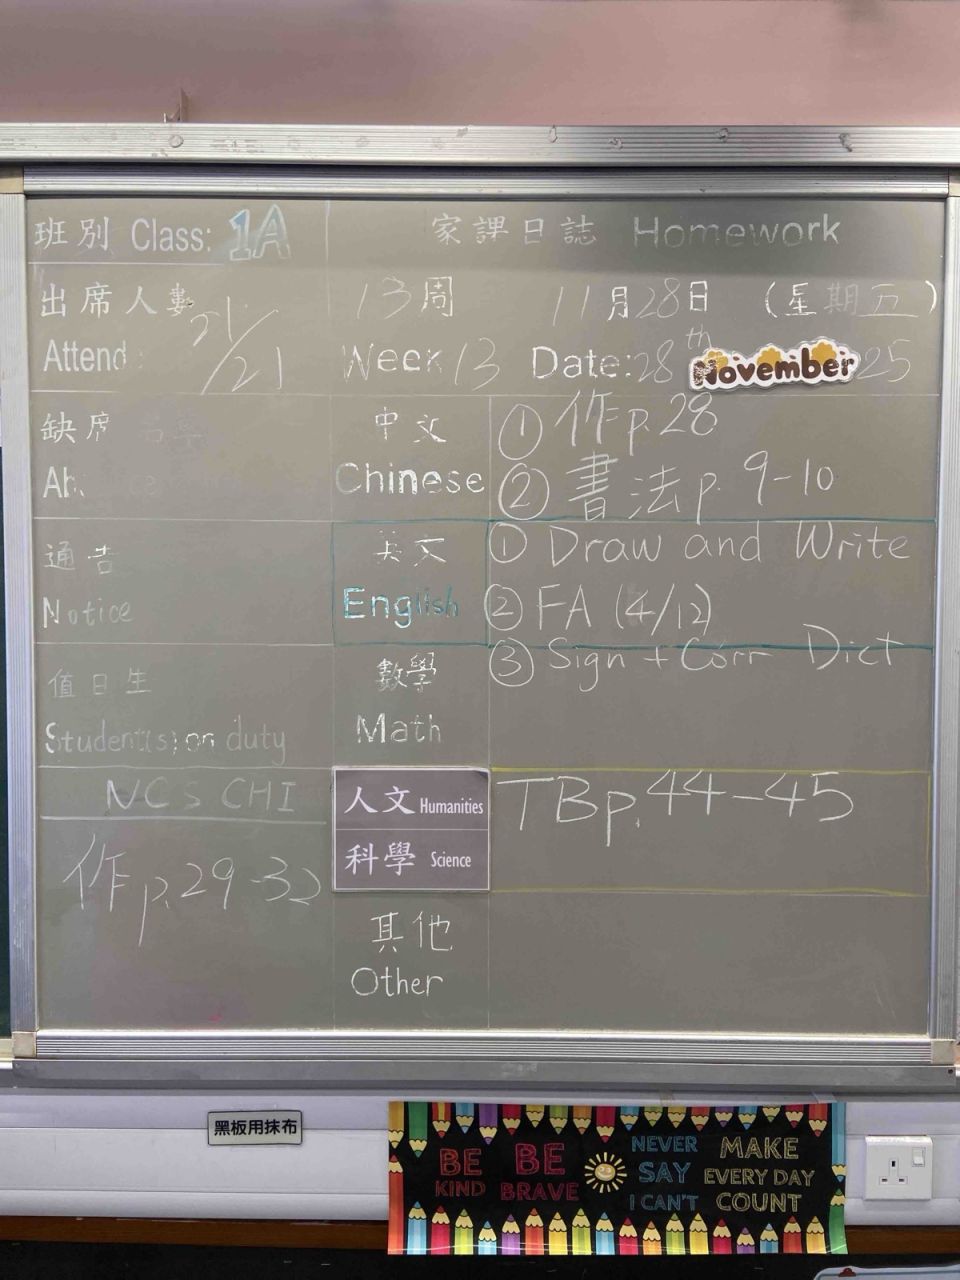 班別 Class: 1A
家課日誌 Homework
出席人數 21/21
Attend
13周 11月28日 (星期五)
Week 13 Date: 28th November 25
缺席
中文 Chinese
① 作p.28
② 書法p. 9-10
通告
Notice
英文 English
① Draw and Write
② FA (4/12)
③ Sign + Corr Dict
值日生
Student(s) on duty
數學
Math
NCS CHI
作p.29-32
人文 Humanities
科學 Science
TBp.44-45
其他
Other
黑板用抹布
BE KIND
BE BRAVE
NEVER SAY I CAN'T
MAKE EVERY DAY COUNT